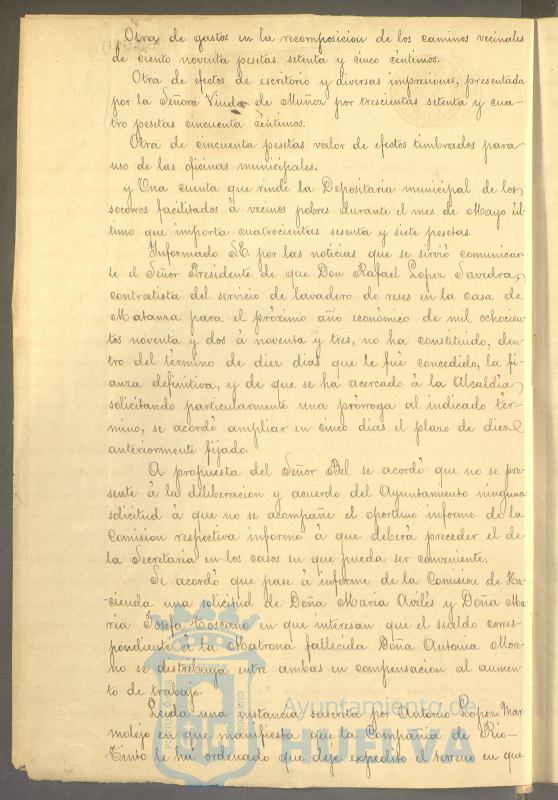 Otra de gastos en la recomposicion de los caminos vecinales
de ciento noventa pesetas setenta y cinco céntimos.
Otra de efectos de escritorio y diversas impresiones, presentada
por la Señora Viuda de Muñoz por trescientas setenta y cua-
tro pesetas cincuenta céntimos.
Otra de cincuenta pesetas valor de efectos timbrados para
uso de las oficinas municipales.
y Una cuenta que rinde la Depositaria municipal de los
socorros facilitados á vecinos pobres durante el mes de Mayo úl-
timo que importa cuatrocientas sesenta y siete pesetas.
Informado S.E. por las noticias que se sirvió comunicar-
le el Señor Presidente de que Don Rafael Lopez Savedra,
contratista del servicio de lavadero de reses en la casa de
Matanza para el próximo año económico de mil ochocien-
tos noventa y dos á noventa y tres, no ha constituido, den-
tro del término de diez dias que le fué concedido, la fi-
anza definitiva, y de que se ha acercado á la Alcaldia
solicitando particularmente una prórroga al indicado tér-
mino, se acordó ampliar en cinco dias el plazo de diez
anteriormente fijado.
A propuesta del Señor Bel se acordó que no se pre-
sente á la deliberacion y acuerdo del Ayuntamiento ninguna
solicitud á que no se acompañe el oportuno informe de la
Comision respectiva informe á que deberá preceder el de
la Secretaria en los casos en que pueda ser conveniente.
Se acordó que pase á informe de la Comision de Ha-
cienda una solicitud de Doña Maria Avilés y Doña Ma-
ria Josefa Toscano en que interesan que el sueldo corres-
pondiente á la Matrona fallecida Doña Antonia More-
no se distribuya entre ambas en compensacion al aumen-
to de trabajo.
Leida una instancia suscrita por Antonio Lopez Mar-
molejo en que manifiesta que la Compañia de Rio-
Tinto le ha ordenado que deje expedito el terreno en que
Ayuntamiento de
HUELVA